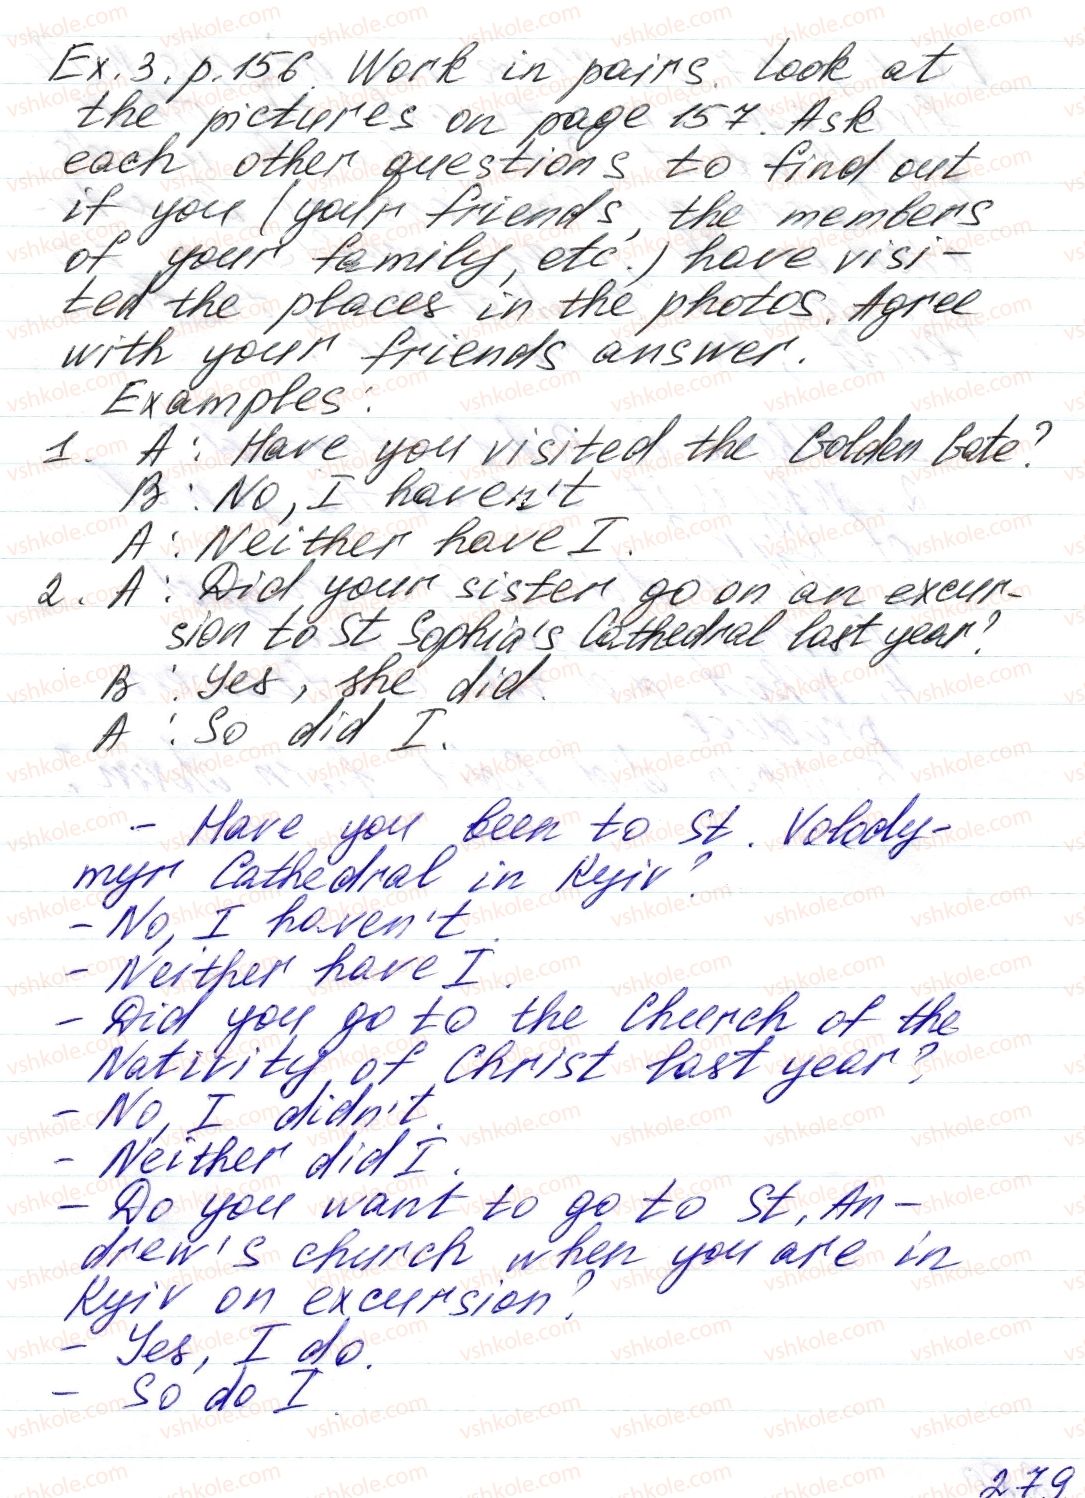 Ex. 3. p. 156. Work in pairs. Look at
the pictures on page 157. Ask
each other questions to find out
if you (your friends, the members
of your family, etc.) have visi-
ted the places in the photos. Agree
with your friends answer.
Examples:
1. A: Have you visited the Golden Gate?
B: No, I haven't
A: Neither have I.
2. A: Did your sister go on an excur-
sion to St Sophia's Cathedral last year?
B: Yes, she did.
A: So did I.
- Have you been to St. Volody-
myr Cathedral in Kyiv?
- No, I haven't.
- Neither have I.
- Did you go to the Church of the
Nativity of Christ last year?
- No, I didn't.
- Neither did I.
- Do you want to go to St. An-
drew's church when you are in
Kyiv on excursion?
- Yes, I do.
- So do I.
279
vshkole.com